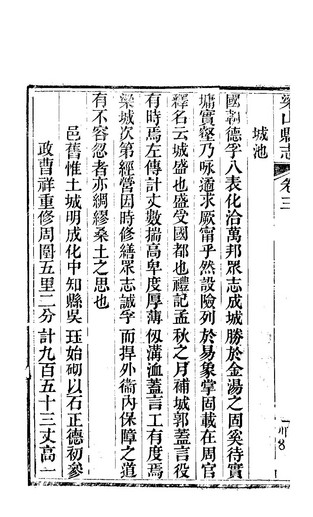 梁山縣志
卷三
城池
國朝德孚八表化洽萬邦眾志成城勝於金湯之固奚待實
墉實壑乃咏遹求厥甯乎然設險列於易象掌固載在周官
釋名云城盛也盛受國都也禮記孟秋之月補城郭蓋言役
有時焉左傳計丈數揣高卑度厚薄仞溝洫蓋言工有度焉
梁城次第經營因時修繕眾志誠孚而捍外衞內保障之道
有不容忽者亦綢繆桑土之思也
邑舊惟土城明成化中知縣吳珏始砌以石正德初參
政曹祥重修周圍五里二分計九百五十三丈高一